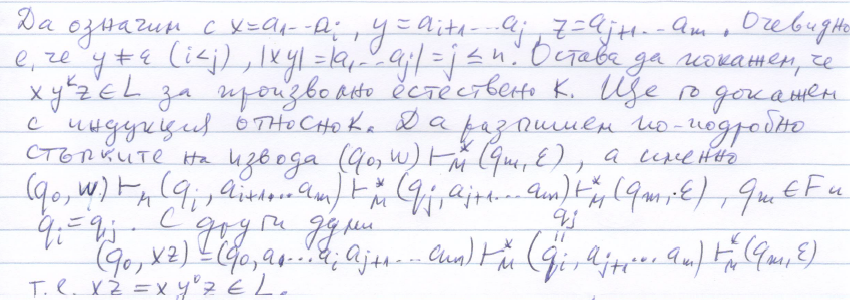 Да означим с x=a₁...aᵢ, y=aᵢ₊₁...aⱼ, z=aⱼ₊₁...aₘ. Очевидно
е, че y≠ε (i<j), |xy|=|a₁...aⱼ|=j≤n. Остава да покажем, че
xyᵏz∈L за произволно естествено k. Ще го докажем
с индукция относно k. Да разпишем по-подробно
стъпките на извода (q₀,w)⊢*ₘ(qₘ,ε), а именно
(q₀,w)⊢ₘ(qᵢ,aᵢ₊₁...aₘ)⊢*ₘ(qⱼ,aⱼ₊₁...aₘ)⊢*ₘ(qₘ,ε), qₘ∈F и
qᵢ=qⱼ. С други думи qⱼ
(q₀,xz)=(q₀,a₁...aᵢaⱼ₊₁...aₘ)⊢*ₘ(qᵢ,aⱼ₊₁...aₘ)⊢*ₘ(qₘ,ε)
т.е. xz=xy⁰z∈L.